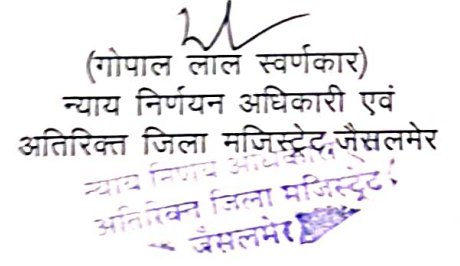 (गोपाल लाल स्वर्णकार)
न्याय निर्णयन अधिकारी एवं
अतिरिक्त जिला मजिस्ट्रेट,जैसलमेर
न्याय निर्णय अधिकारी
अतिरिक्त जिला मजिस्ट्रेट
जैसलमेर